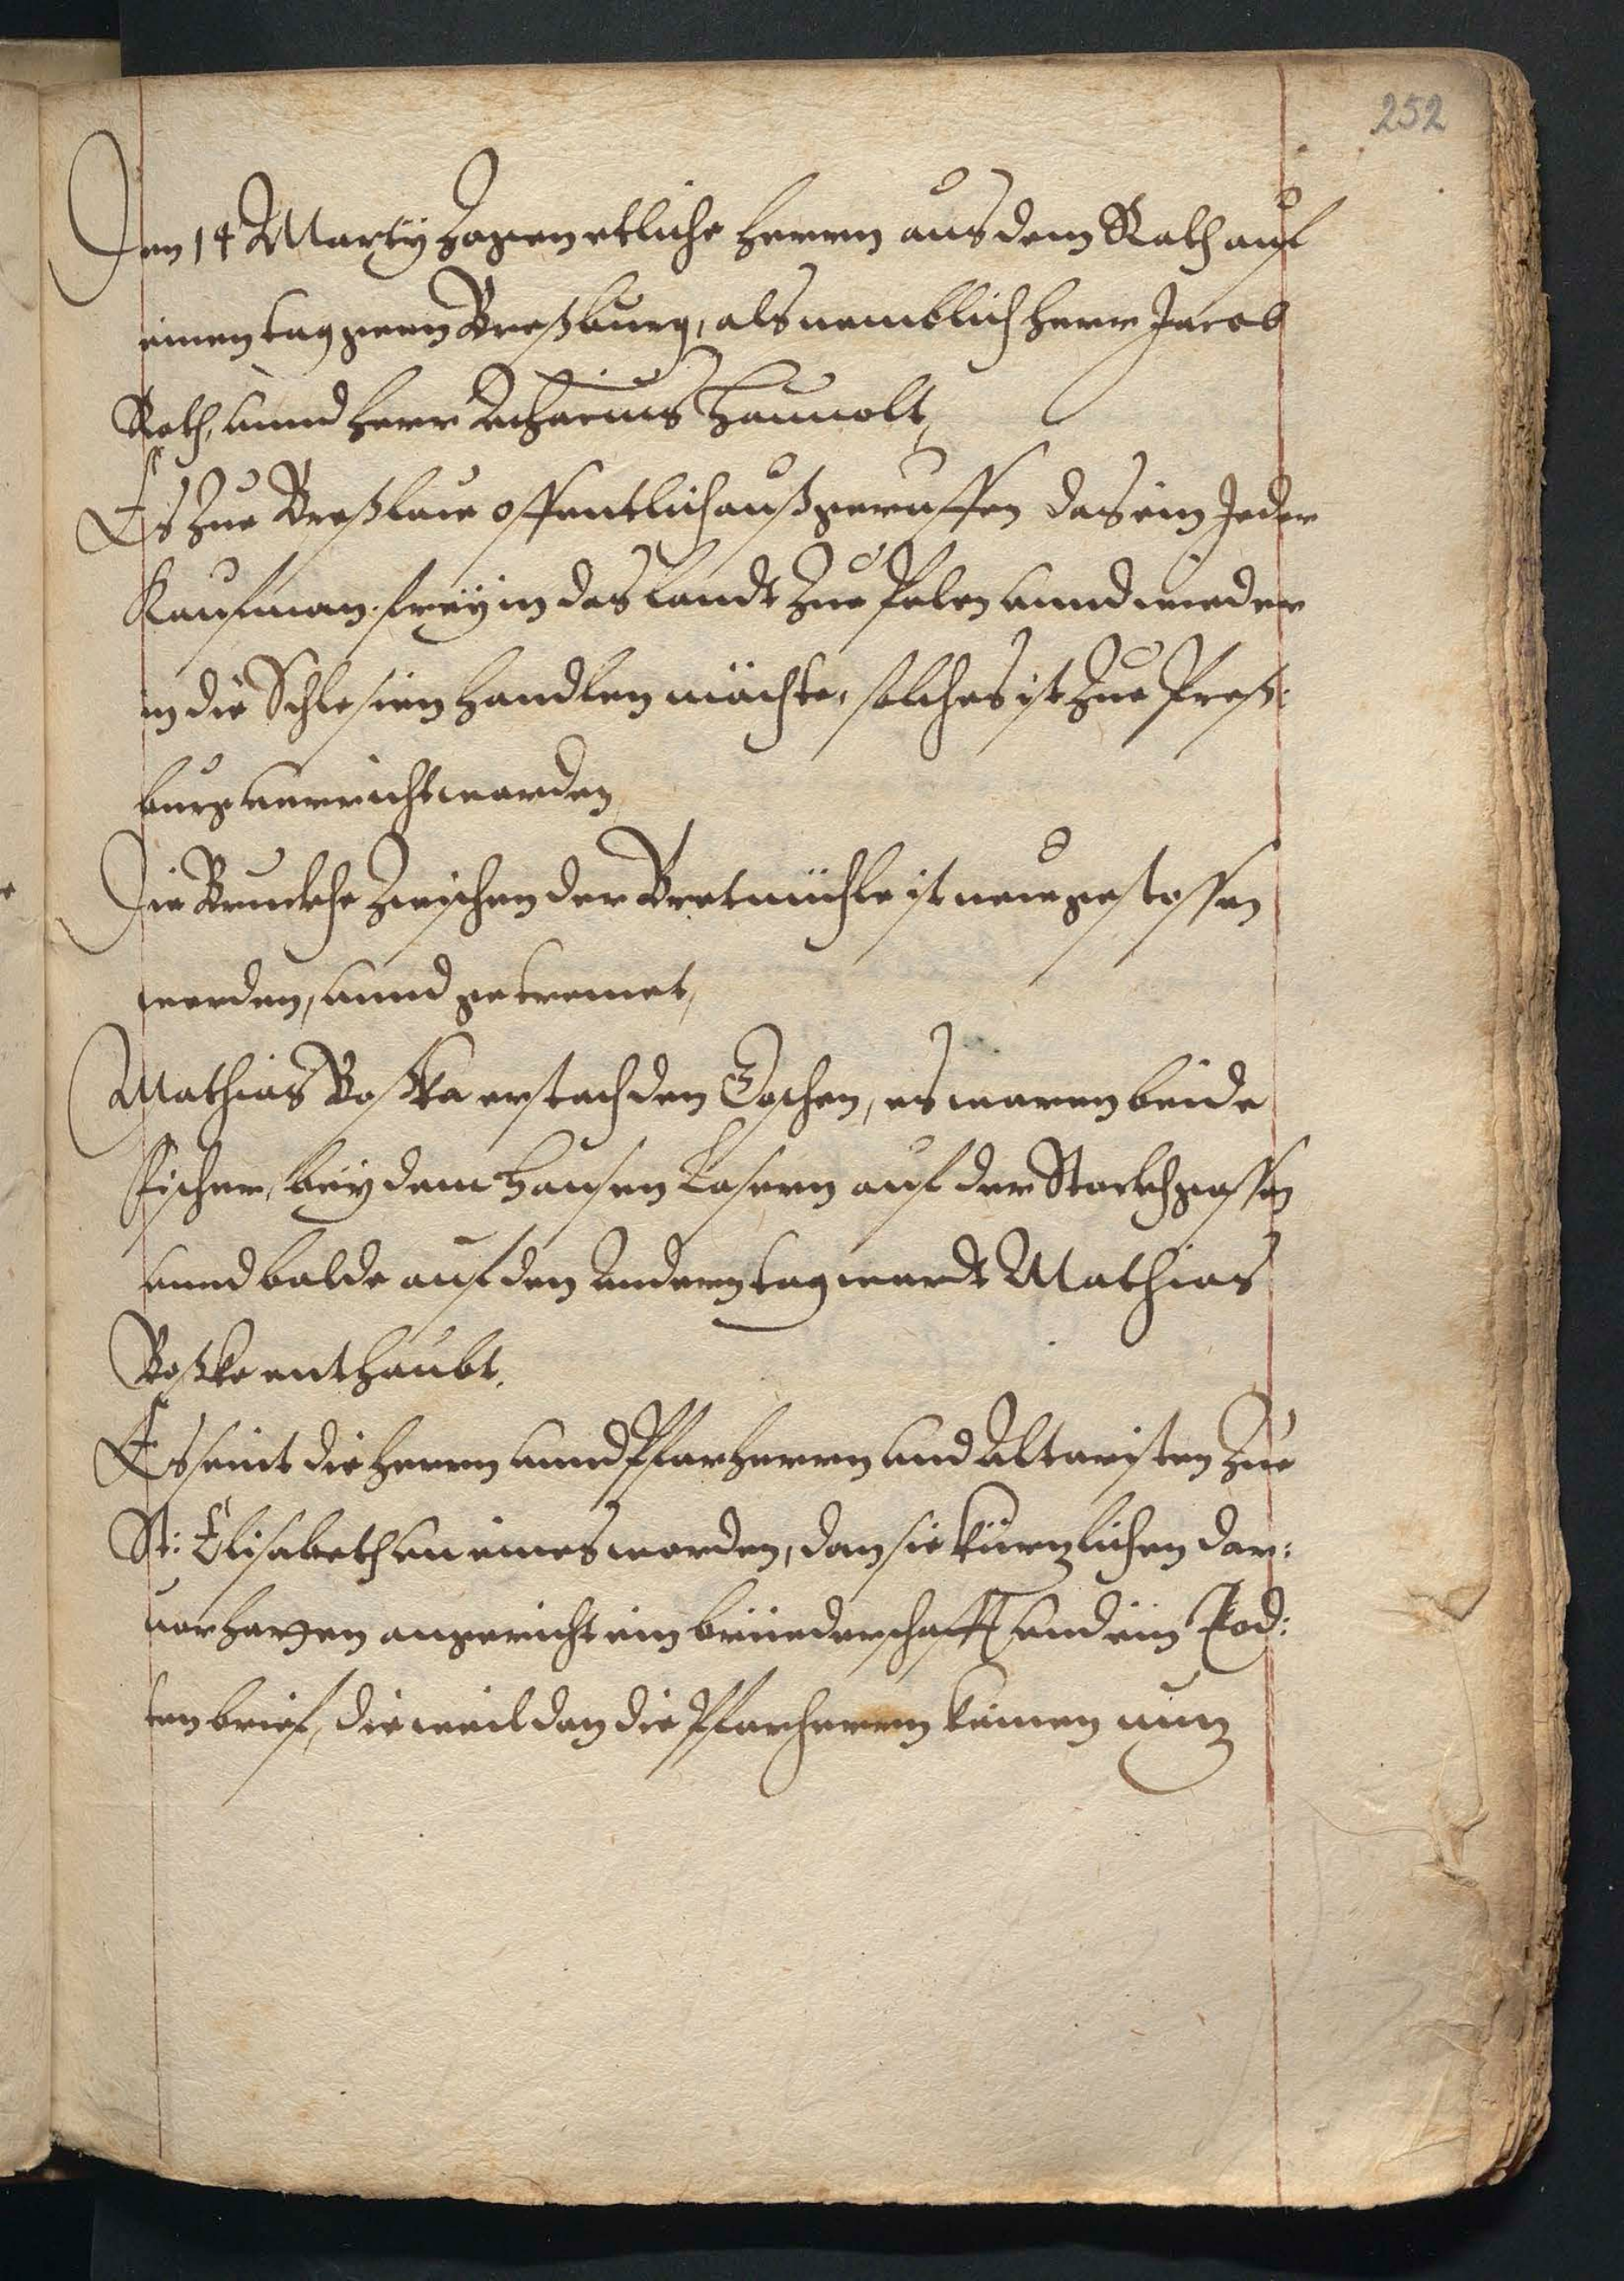 252
Den 14 Marty Zogen etliche Herrn aus dem Rath auf
einen tag geen Breßburg, als nemblich Herr Jacob
Roth, unnd Herr Achacius Haunolt,
Es Zue Breßlaue offentlich außgeruffen das ein Jeder
Kaufman freÿ in das Landt Zue Polen unnd wieder
in die Schlesien handlen möchte, solches ist Zue Preß:
burg verricht worden
Die Bruckhe Zwischen der Bretmühle ist new gestossen
worden, unnd getremet,
Mathias Boßka erstach den Oschen, es waren beide
Fischer, beÿ dem Hansen Lasern auf der Stockhgassen
unnd balde auf den Andern tag wardt Mathias
Boßka enthaubt.
Es seint die Herrn unnd Pfarherrn und Altaristen Zue
St: Elisabeth un eines worden, dan sie kürzlichen dar:
vor hatten angericht ein brüederschafft und ein Tod:
ten brief, die weil dan die Pfarherrn keinen nuz